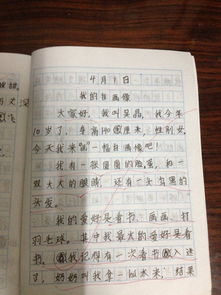 4月1日
我的自画像
大家好,我叫吴晶,我今年
10岁了,身高140厘米,性别女,
今天我来"画"一幅自画像吧!
我有一张圆圆的脸蛋,和一
双大大的眼睛,还有一头乌黑的
头发。
我的爱好是看书、画画、打
羽毛球。其中我最大的爱好是看
书,我记得有一次看书入迷
了,奶奶到我拿一些水来,结果